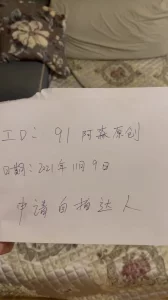 ID: 91 阿森原创
日期: 2021年11月9日
申请自拍达人